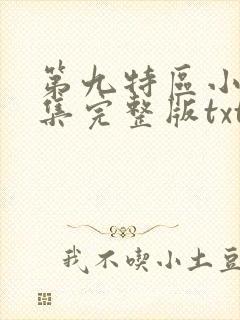 第九特區小
集完整版txt
我不喫小土豆